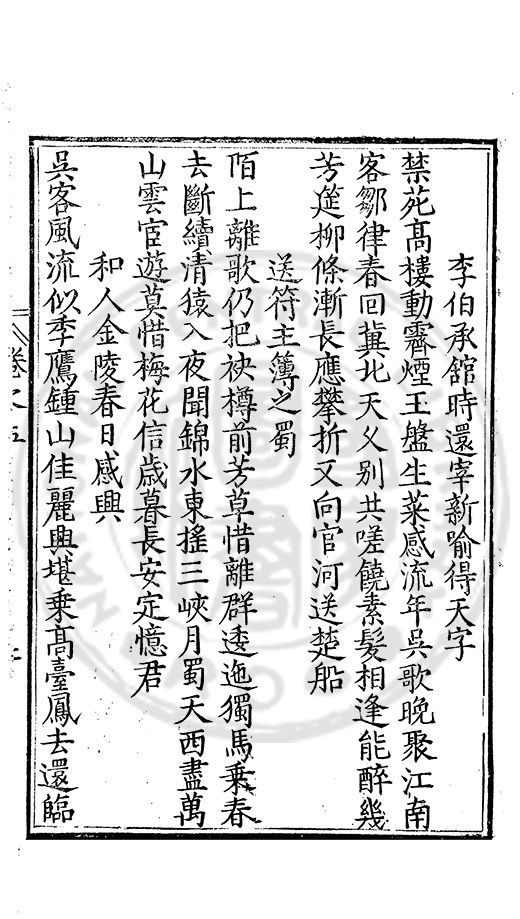 李伯承舘時還宰新喻得天字
禁苑髙樓動霽煙王盤生菜感流年吳歌晚聚江南
客鄒律春回冀北天乆别共嗟饒素髪相逢能醉幾
芳筵柳條漸長應攀折又向官河送楚船
送符主簿之蜀
陌上離歌仍把袂樽前芳草惜離群逶迤獨馬乗春
去斷續清猿入夜聞錦水東搖三峽月蜀天西盡萬
山雲宦遊莫惜梅花信歳暮長安定憶君
和人金陵春日感興
吳客風流似季鷹鍾山佳麗興堪乗髙臺鳳去還臨
卷之五